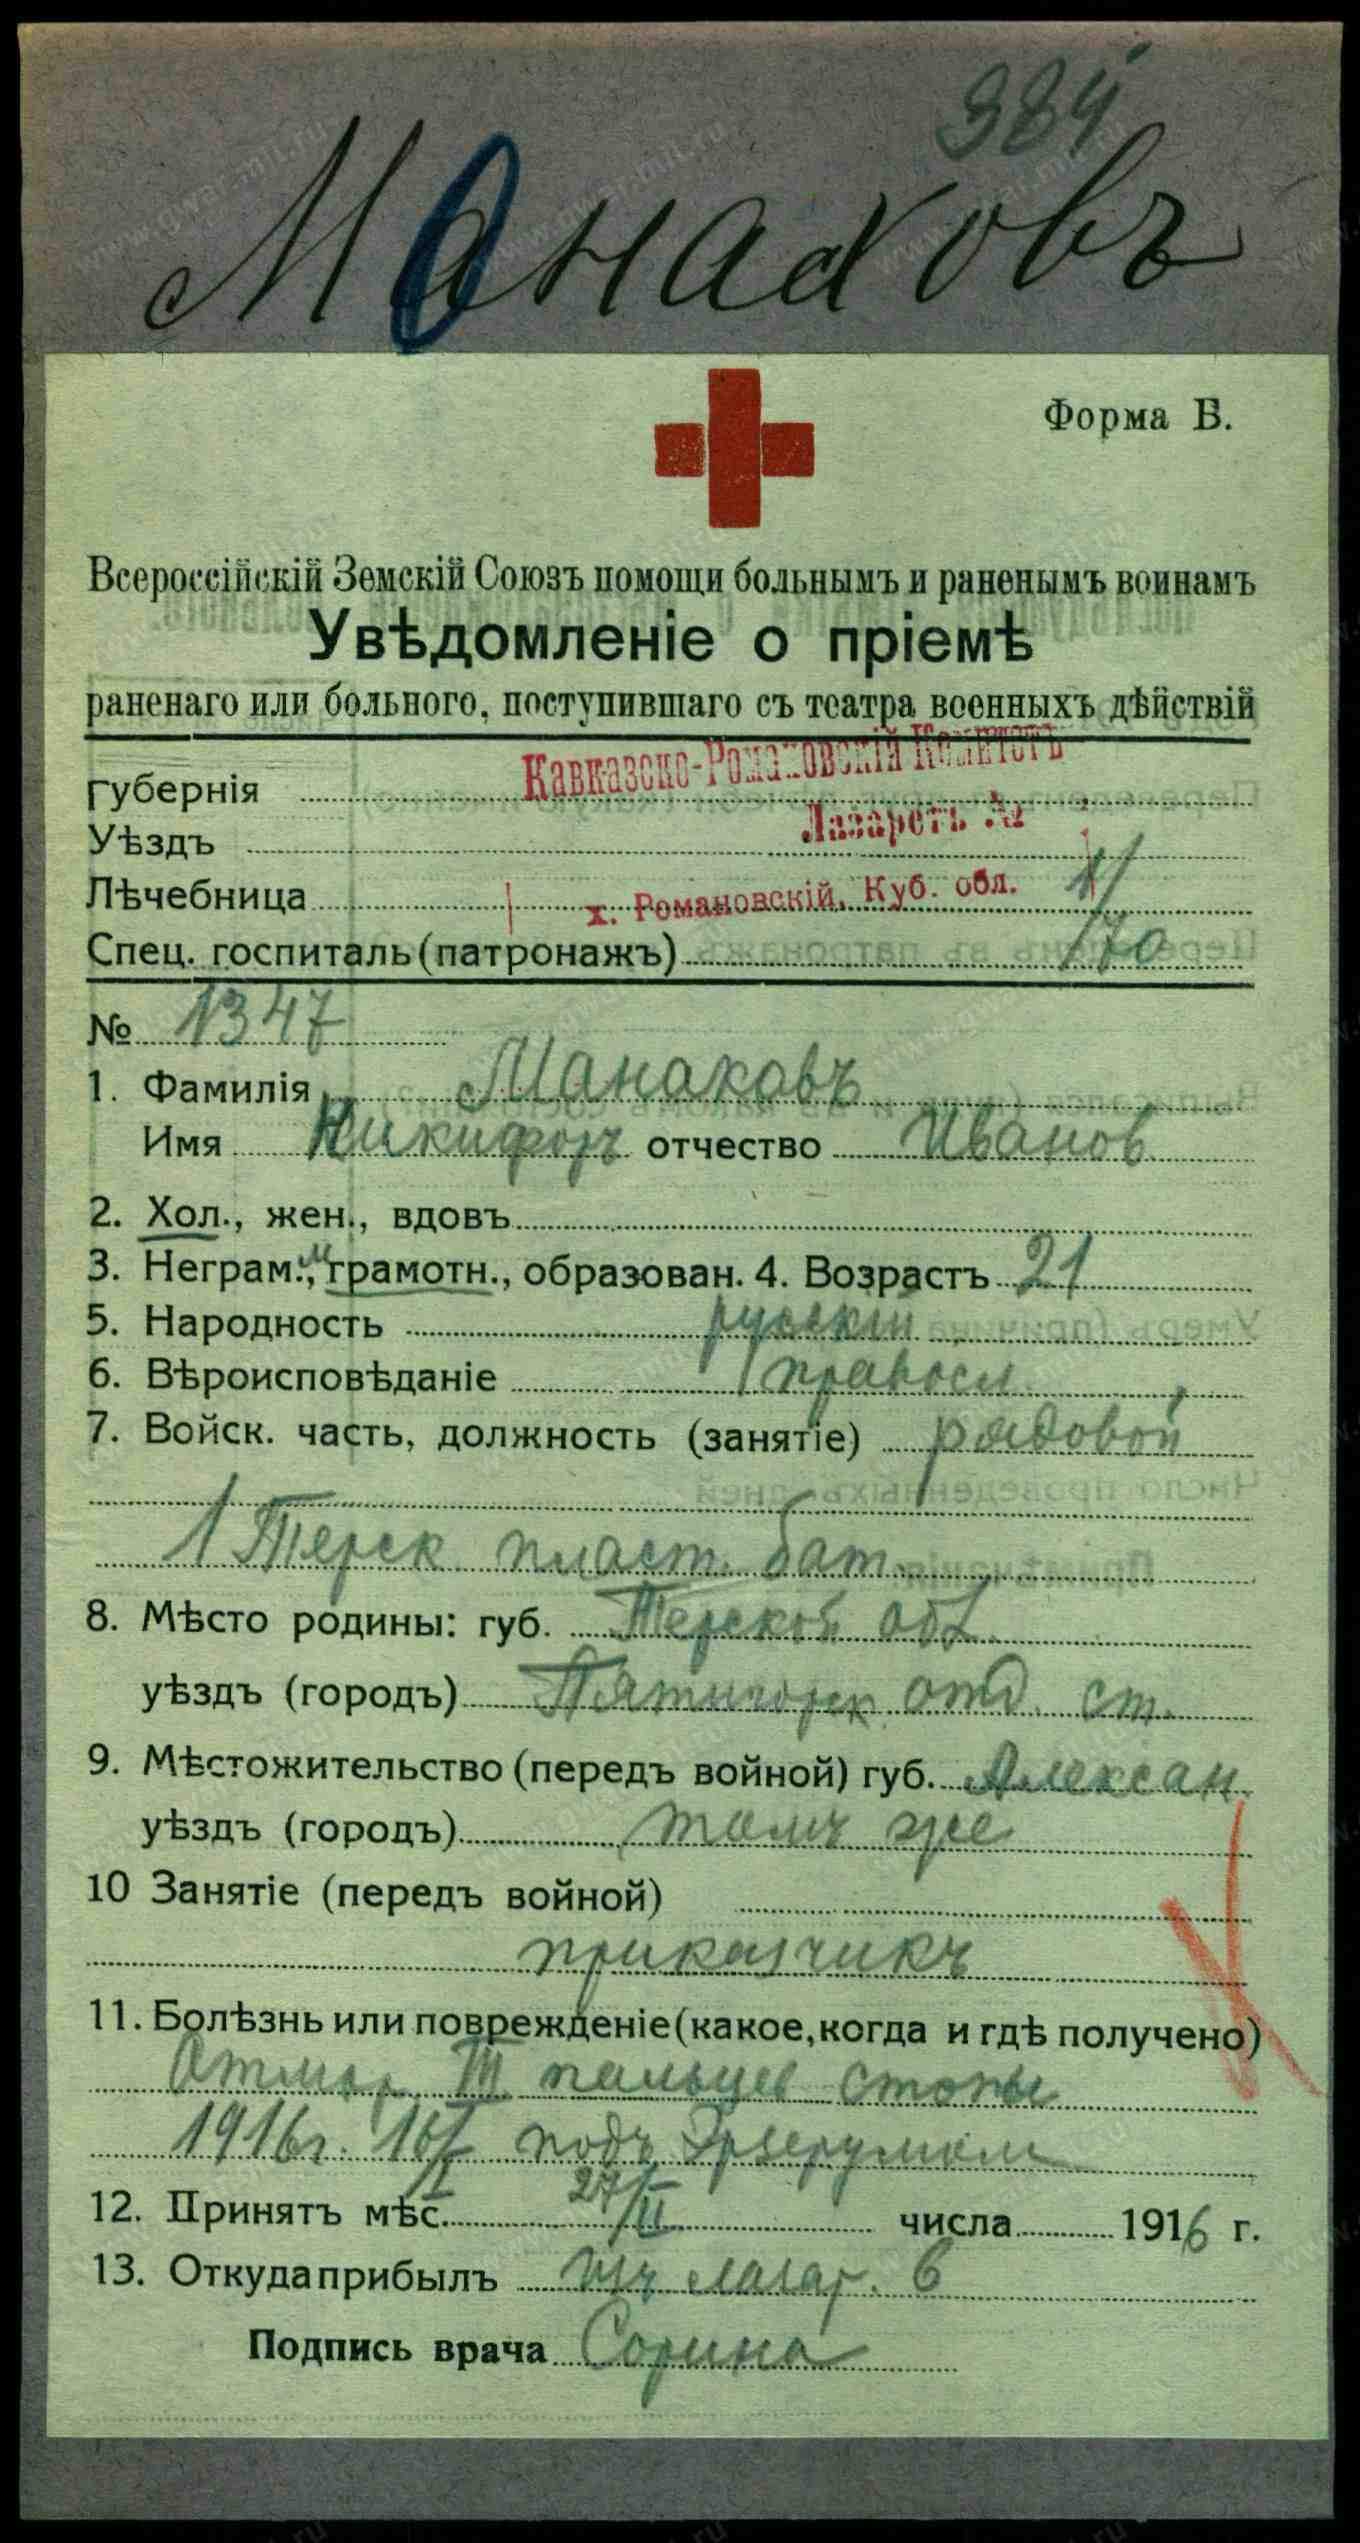 984
Манаховъ
Форма Б.
Всероссійскій Земскій Союзъ помощи больнымъ и раненымъ воинамъ
Увѣдомленіе о пріемѣ
раненаго или больного, поступившаго съ театра военныхъ дѣйствій
Кавказско-Романовскій Комитетъ
губернія
Лазаретъ №
Уѣздъ
Лѣчебница х. Романовскій, Куб. обл.
Спец. госпиталь (патронажъ) 170
№ 1347
1. Фамилія Манаховъ
Имя Никифоръ отчество Иванов
2. Хол., жен., вдовъ
3. Неграм., грамотн., образован. 4. Возрастъ 21
5. Народность русскій
6. Вѣроисповѣданіе правосл.
7. Войск. часть, должность (занятіе) рядовой
1 Терск пласт. бат.
8. Мѣсто родины: губ. Терской обл.
уѣздъ (городъ) Пятигорск. отд. ст.
9. Мѣстожительство (передъ войной) губ. Алексан.
уѣздъ (городъ) тамъ же
10 Занятіе (передъ войной)
приказчикъ
11. Болѣзнь или поврежденіе (какое, когда и гдѣ получено)
Отмор. III пальцев стопы
1916г. 16/I подъ Эрзерумом
12. Принятъ мѣс. 27/II числа 1916 г.
13. Откуда прибылъ изъ лазар. 6
Подпись врача Сорина